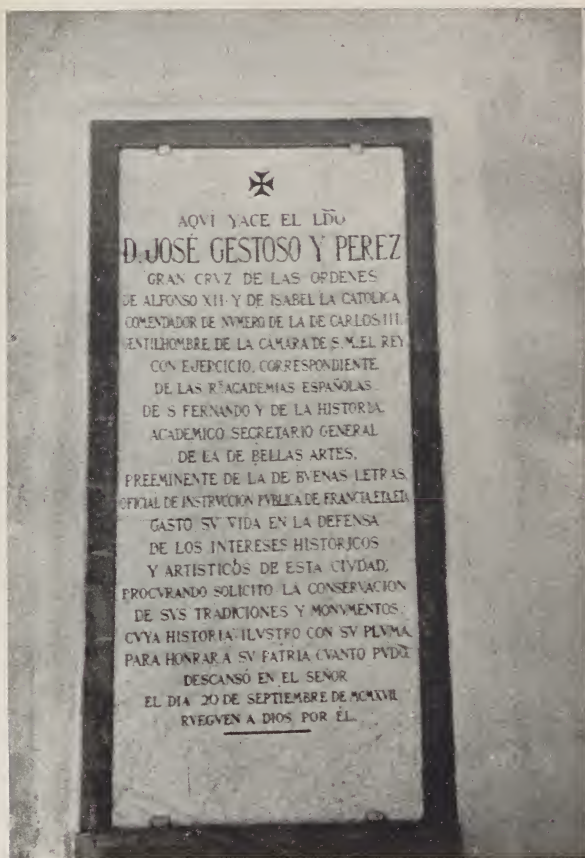 AQVI YACE EL LDO
D. JOSÉ GESTOSO Y PEREZ
GRAN CRVZ DE LAS ORDENES
DE ALFONSO XII Y DE ISABEL LA CATOLICA
COMENDADOR DE NVMERO DE LA DE CARLOS III,
GENTILHOMBRE DE LA CAMARA DE S. M. EL REY
CON EJERCICIO, CORRESPONDIENTE
DE LAS Rs ACADEMIAS ESPAÑOLAS
DE S FERNANDO Y DE LA HISTORIA.
ACADEMICO SECRETARIO GENERAL
DE LA DE BELLAS ARTES,
PREEMINENTE DE LA DE BVENAS LETRAS,
OFICIAL DE INSTRVCCION PVBLICA DE FRANCIA, ETA, ETA
GASTO SV VIDA EN LA DEFENSA
DE LOS INTERESES HISTORICOS
Y ARTISTICOS DE ESTA CIVDAD,
PROCVRANDO SOLICITO LA CONSERVACION
DE SVS TRADICIONES Y MONVMENTOS,
CVYA HISTORIA ILVSTRO CON SV PLVMA,
PARA HONRAR A SV PATRIA CVANTO PVDO.
DESCANSÓ EN EL SEÑOR
EL DIA 20 DE SEPTIEMBRE DE MCMXVII
RVEGVEN A DIOS POR ÉL.